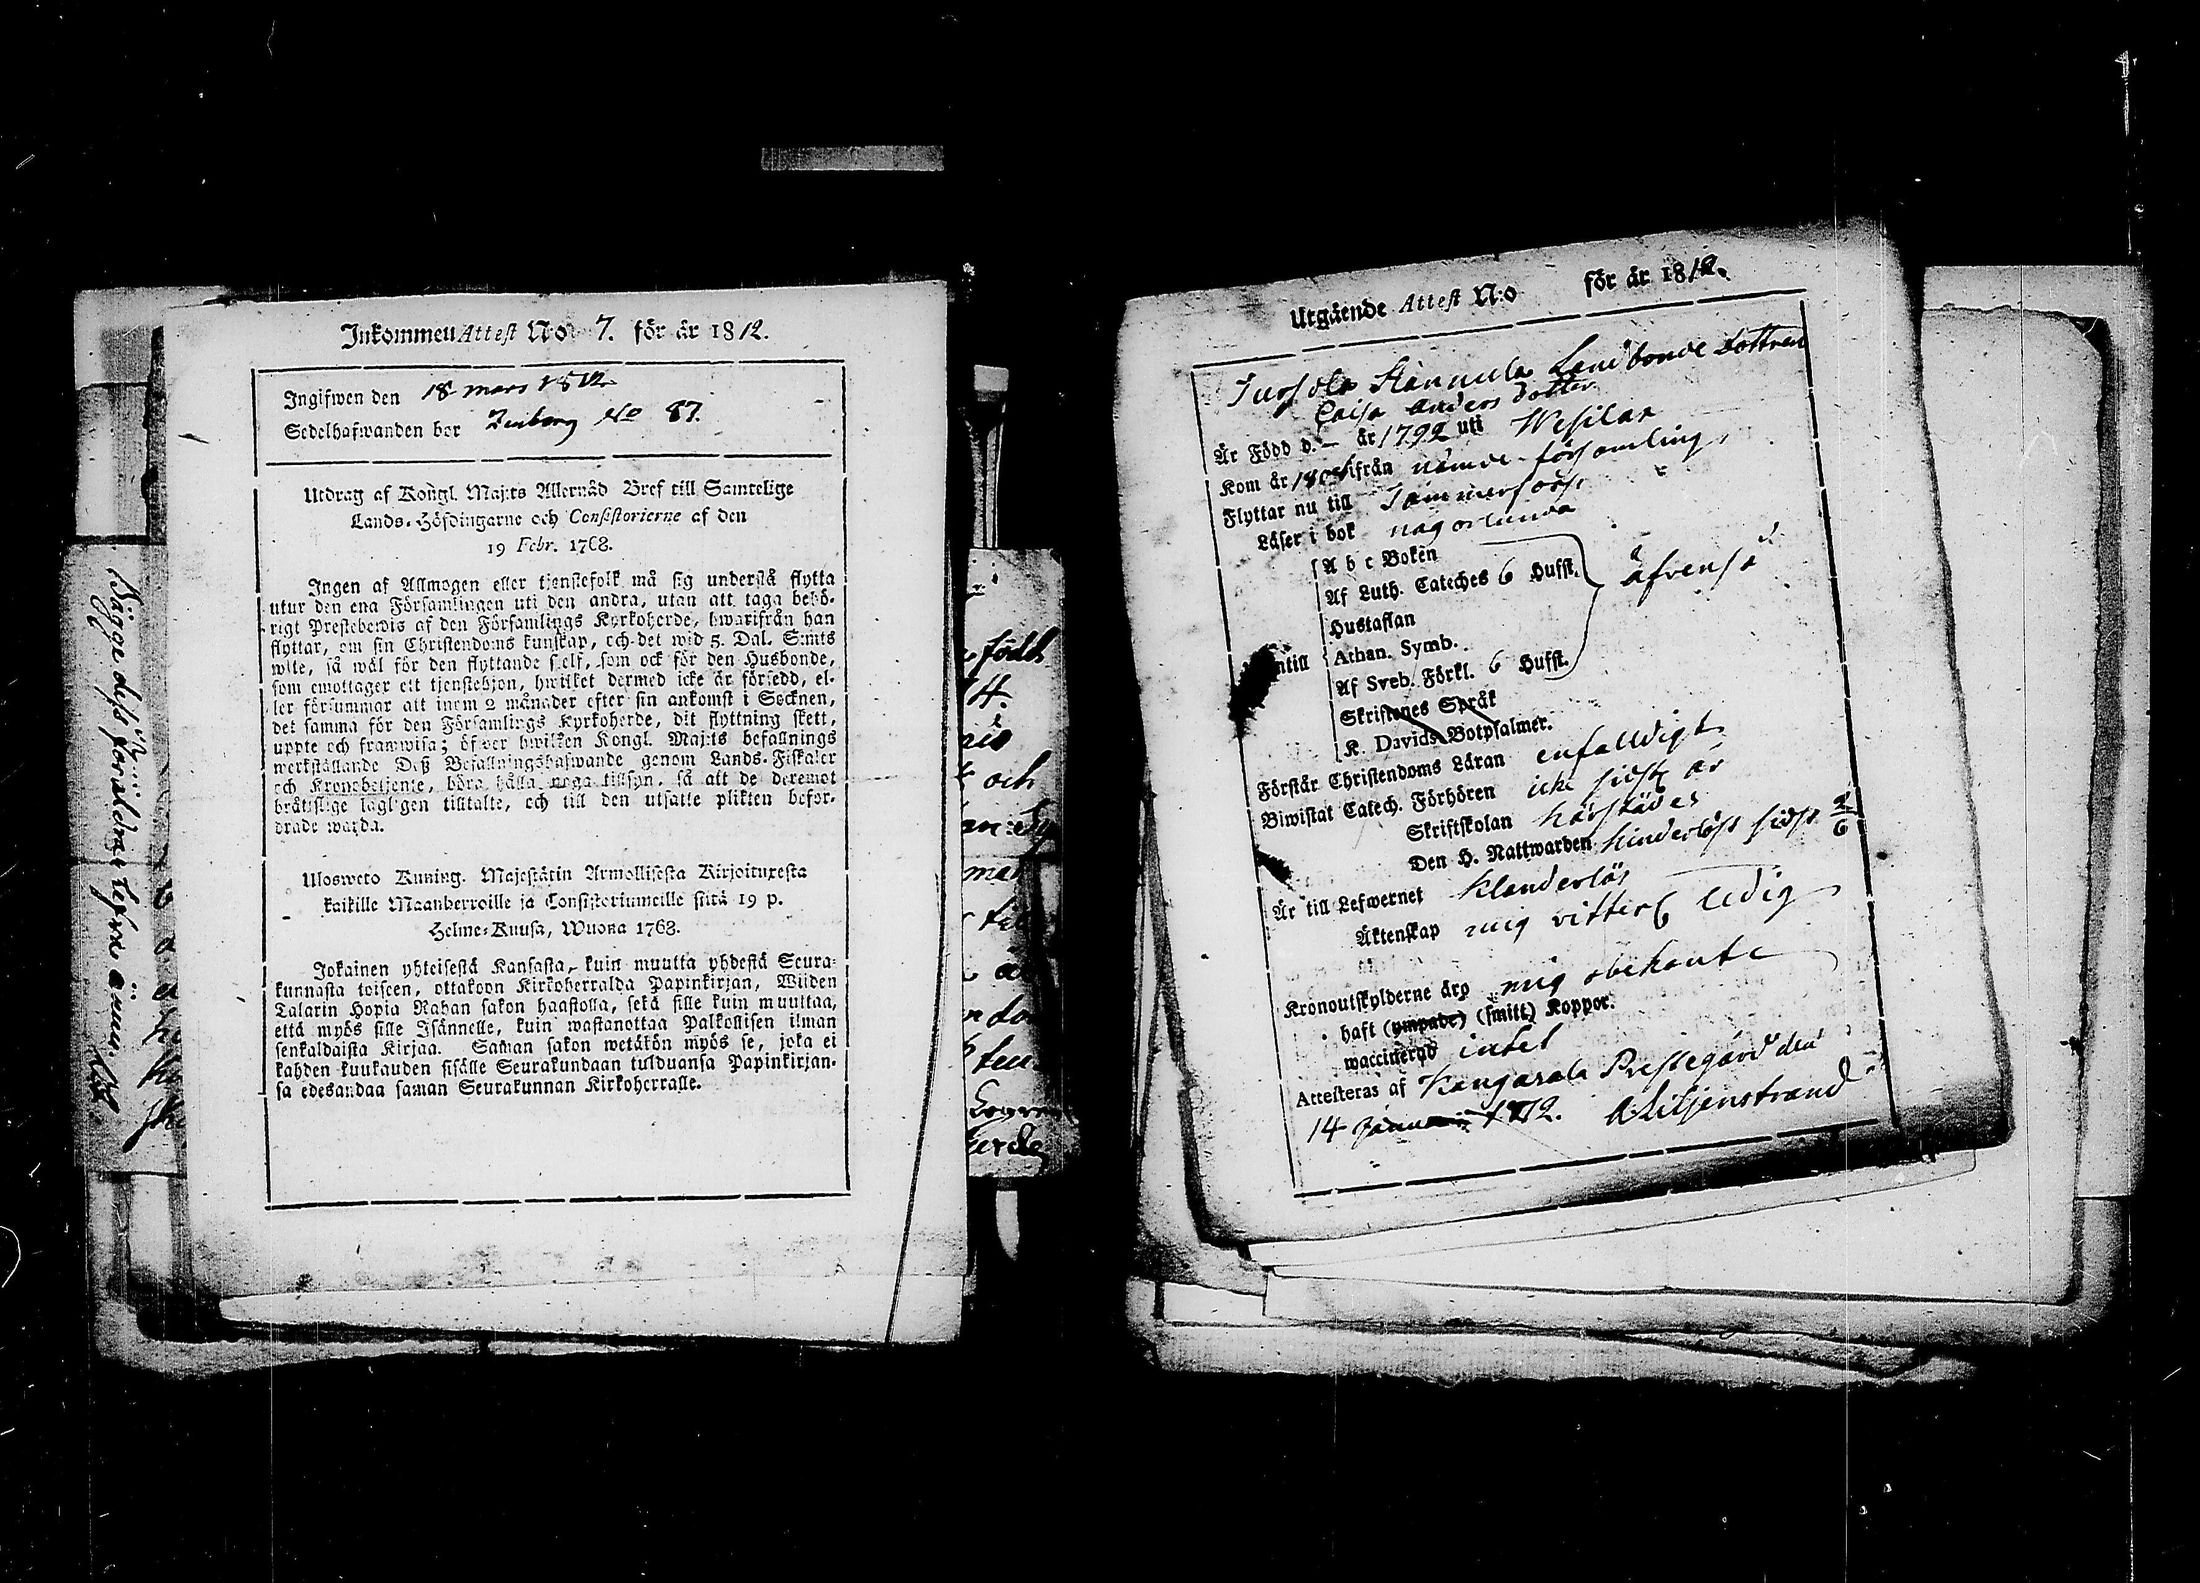 Inkommen Attest No 7. för år 1812.
Ingifwen den 18 mars 1812.
Sedelhafwanden bor No 87.
Utdrag af Kongl. Maj:ts Allernåd Bref till Samtelige
Lands-Höfdingarne och Consistorierne af den
19 Febr. 1768.
Ingen af Allmogen eller tjenstefolk må sig understå flytta
utur den ena Församlingen uti den andra, utan att taga behö-
rigt Prestebewis af den Församlings Kyrkoherde, hwarifrån han
flyttar, om sin Christendoms kunskap, och det wid 5. Dal. S:mts
wite, så wäl för den flyttande sjelf, som ock för den Husbonde,
som emottager ett tjenstehjon, hwilket dermed icke är försedd, el-
ler försummar att inom 2 månader efter sin ankomst i Socknen,
det samma för den Församlings Kyrkoherde, dit flyttning skett,
uppte och framwisa; öfwer hwilken Kongl. Maj:ts befallnings
werkställande Deß Befallningshafwande genom Lands-Fiskaler
och Kronobetjente, böra hålla noga tillsyn, så att de deremot
brättslige lagligen tilltalte, och till den utsatte plikten befor-
drade warda.
Ulosweto Kuning. Majestätin Armollisesta Kirjoituxesta
kaikille Maanherroille ja Consistoriumeille siitä 19 p.
Helme-Kuusa, Wuona 1768.
Jokainen yhteisestä Kansasta, kuin muutta yhdestä Seura-
kunnasta toiseen, ottakoon Kirkoherralda Papinkirjan, Wiiden
Talarin Hopia Rahan sakon haastolla, sekä sille kuin muuttaa,
että myös sille Isännelle, kuin wastanottaa Palkollisen ilman
senkaldaista Kirjaa. Saman sakon wetäkön myös se, joka ei
kahden kuukauden sisälle Seurakundaan tulduansa Papinkirjan-
sa edesandaa saman Seurakunnan Kirkoherralle.
Bägge dess föräldrar lefva ännu.
född
14.
och
Utgående Attest N:o för år 1812.
Landbonde dottren
Caisa Anders dotter
Är Född d. — år 1792 uti Wesilax
Kom år ifrån nämde församling
Flyttar nu till Tammerfors
Läser i bok någorlunda
A b c Boken
Af Luth. Cateches 6 Hufst.
Hustaflan
äfvenså
Athan. Symb.
ntill
Af Sveb. Förkl. 6 Hufst.
Skriftenes Språk
K. Davids Botpsalmer.
Förstår Christendoms Läran enfalldigt
Biwistat Catech. Förhören icke sidst år
Skriftskolan härstädes
Den H. Nattwarden hinderlöst sidst 2/6
Är till Lefwernet klanderlös
Äktenskap mig vitterl. Ledig
Kronoutskylderne äro mig obekante
haft (ympade) (smitt) Koppor.
waccinerad intet
Attesteras af Kangasala Prestegård den
14 Januarii 1812. A Liljenstrand